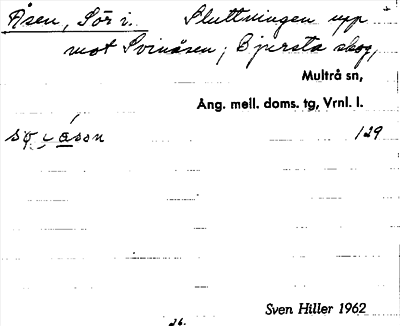 Åsen, Sör i. Sluttningen upp
mot Svinåsen; Bjersta skog,
Multrå sn,
Ang. mell. doms. tg, Vrnl. l.
129
Sven Hiller 1962
26.